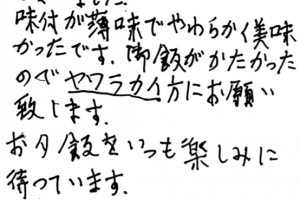 味付が薄味でやわらかく美味
かったです。御飯がかたかった
のでヤワラカイ方にお願い
致します.
お夕飯をいつも楽しみに
待っています.